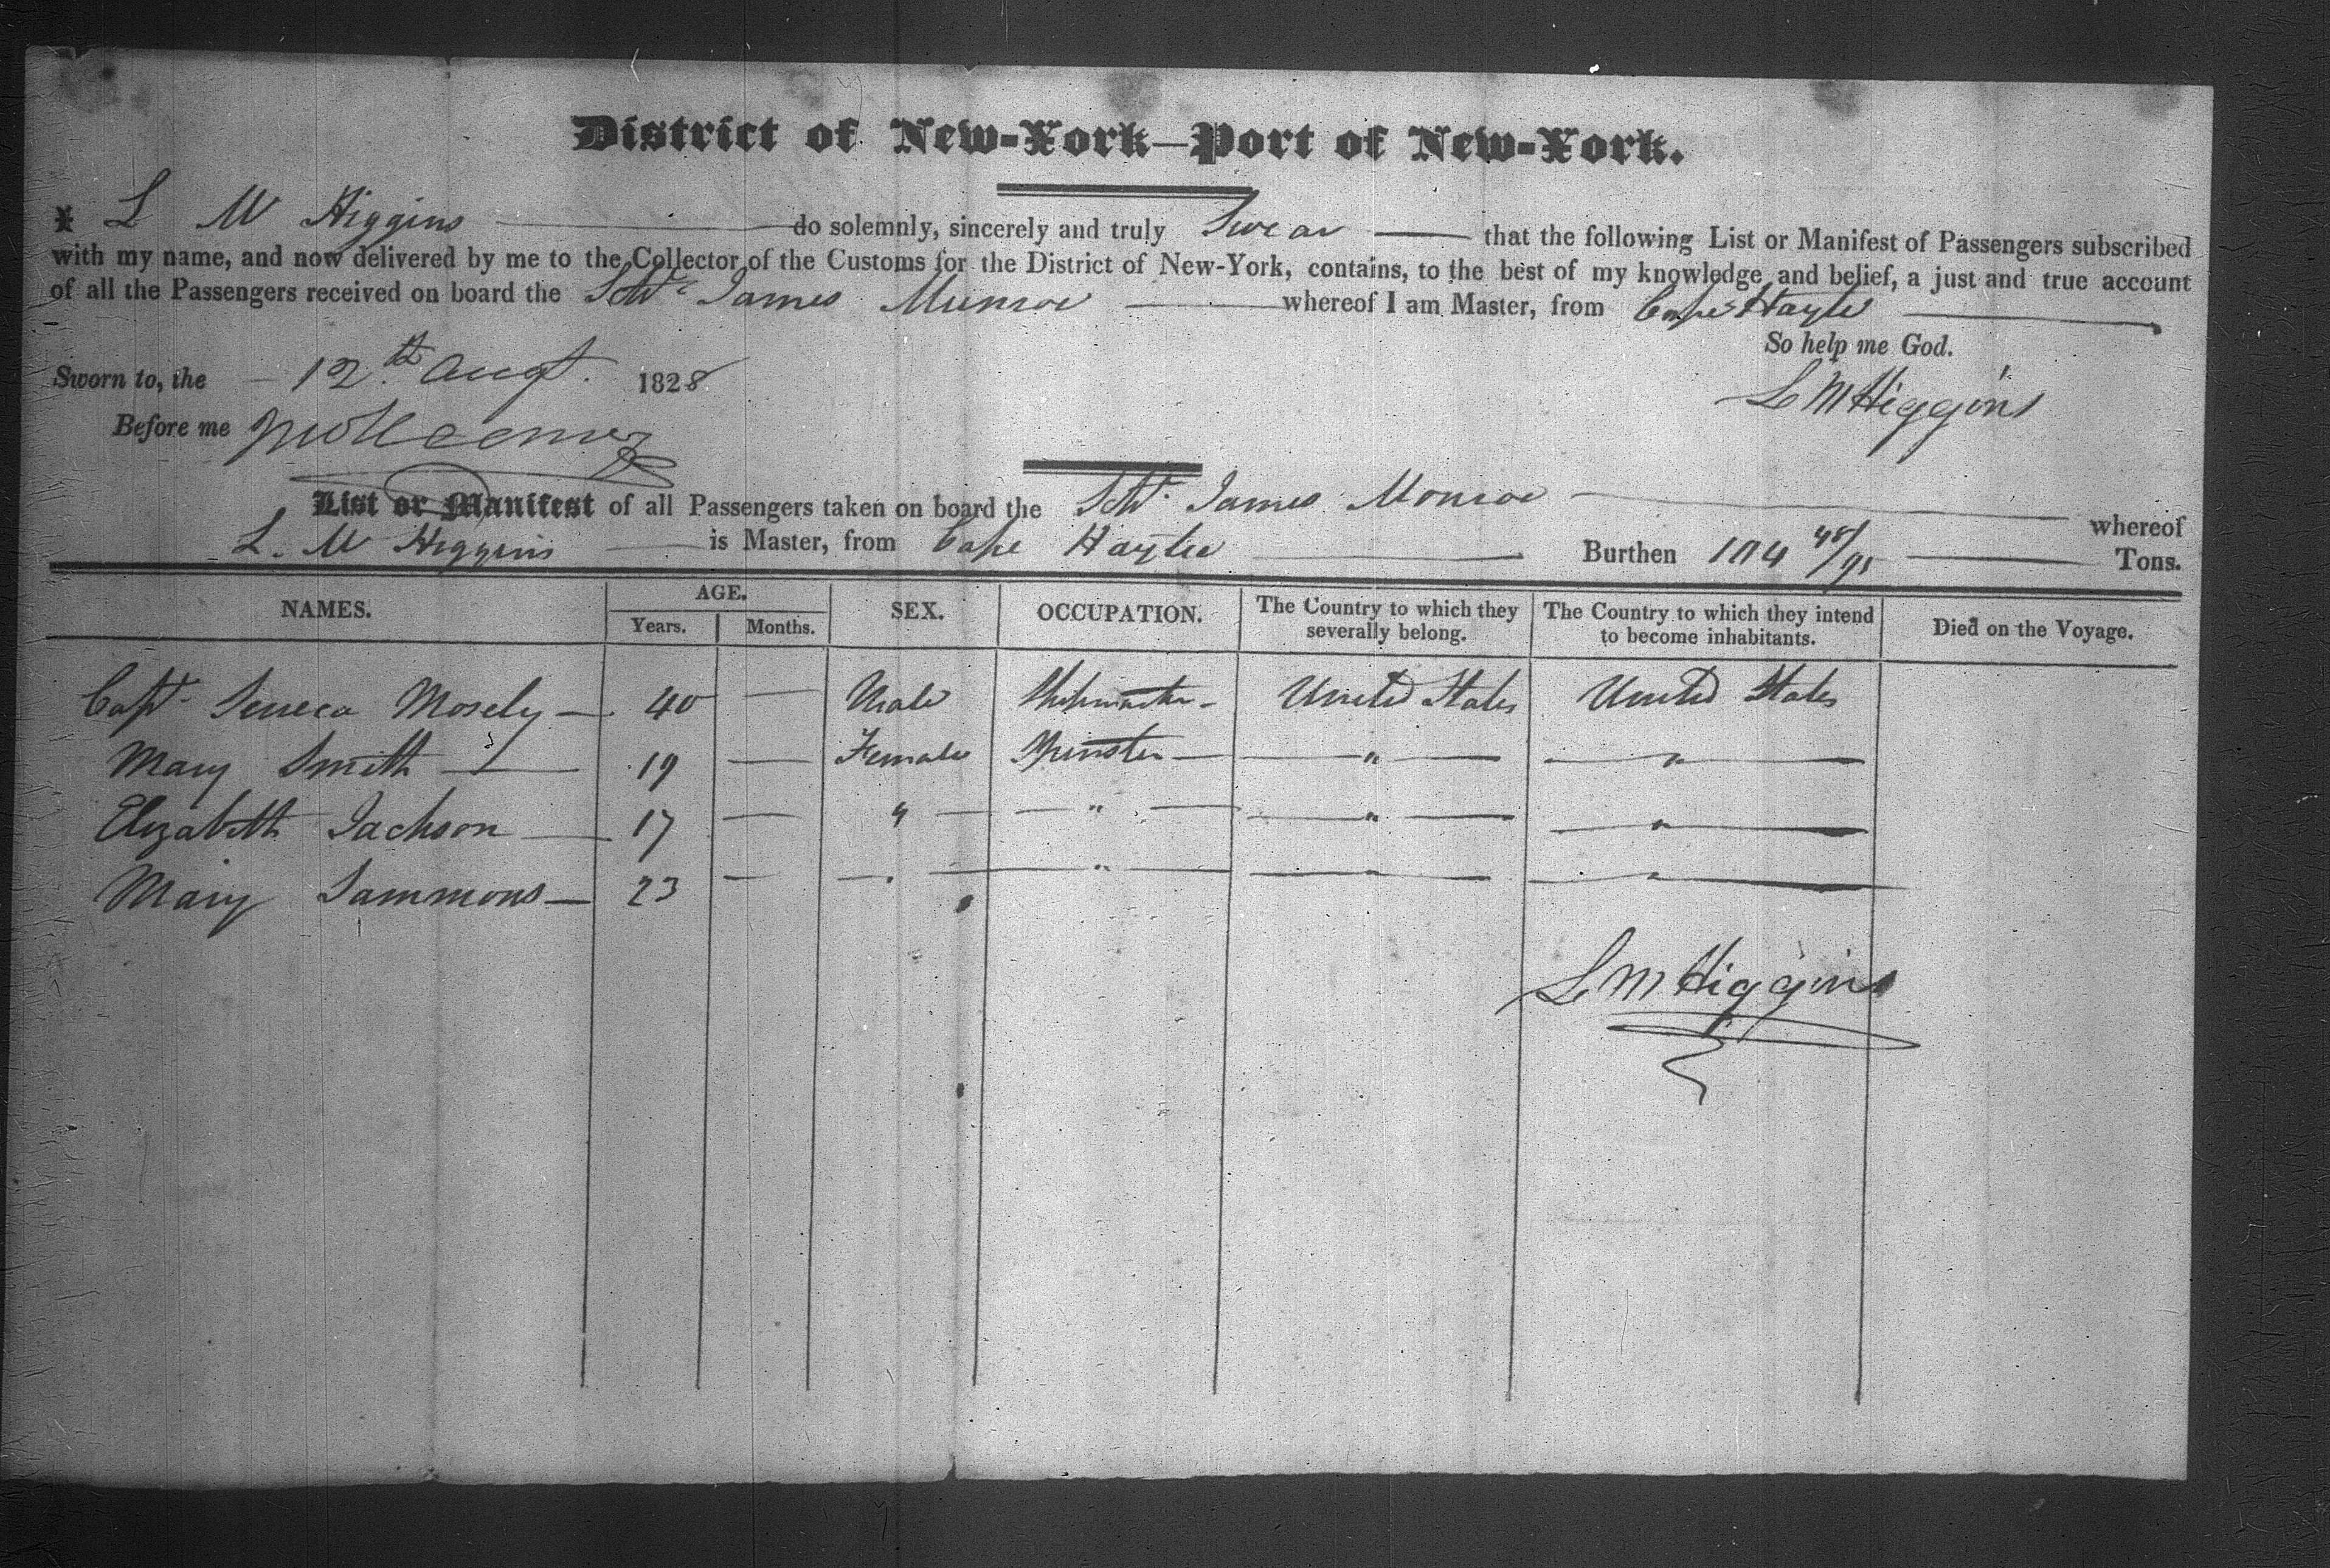 District of New-York—Port of New-York.
I L M Higgins do solemnly, sincerely and truly Swear that the following List or Manifest of Passengers subscribed
with my name, and now delivered by me to the Collector of the Customs for the District of New-York, contains, to the best of my knowledge and belief, a just and true account
of all the Passengers received on board the Schr James Munroe whereof I am Master, from Cape Hayte
So help me God.
Sworn to, the 12th Augt. 1828
L M Higgins
Before me
List or Manifest of all Passengers taken on board the Schr James Monroe whereof
L. M Higgins is Master, from Cape Haytee Burthen 104 48/95 Tons.
NAMES. AGE. Years. Months. SEX. OCCUPATION. The Country to which they severally belong. The Country to which they intend to become inhabitants. Died on the Voyage.
Capt Seneca Mosely — 40 — Male Shipmaster - United States United States
Mary Smith — 19 — Female Spinster — " "
Elizabeth Jackson — 17 — " " " "
Mary Sammons — 23 — " " — "
L M Higgins